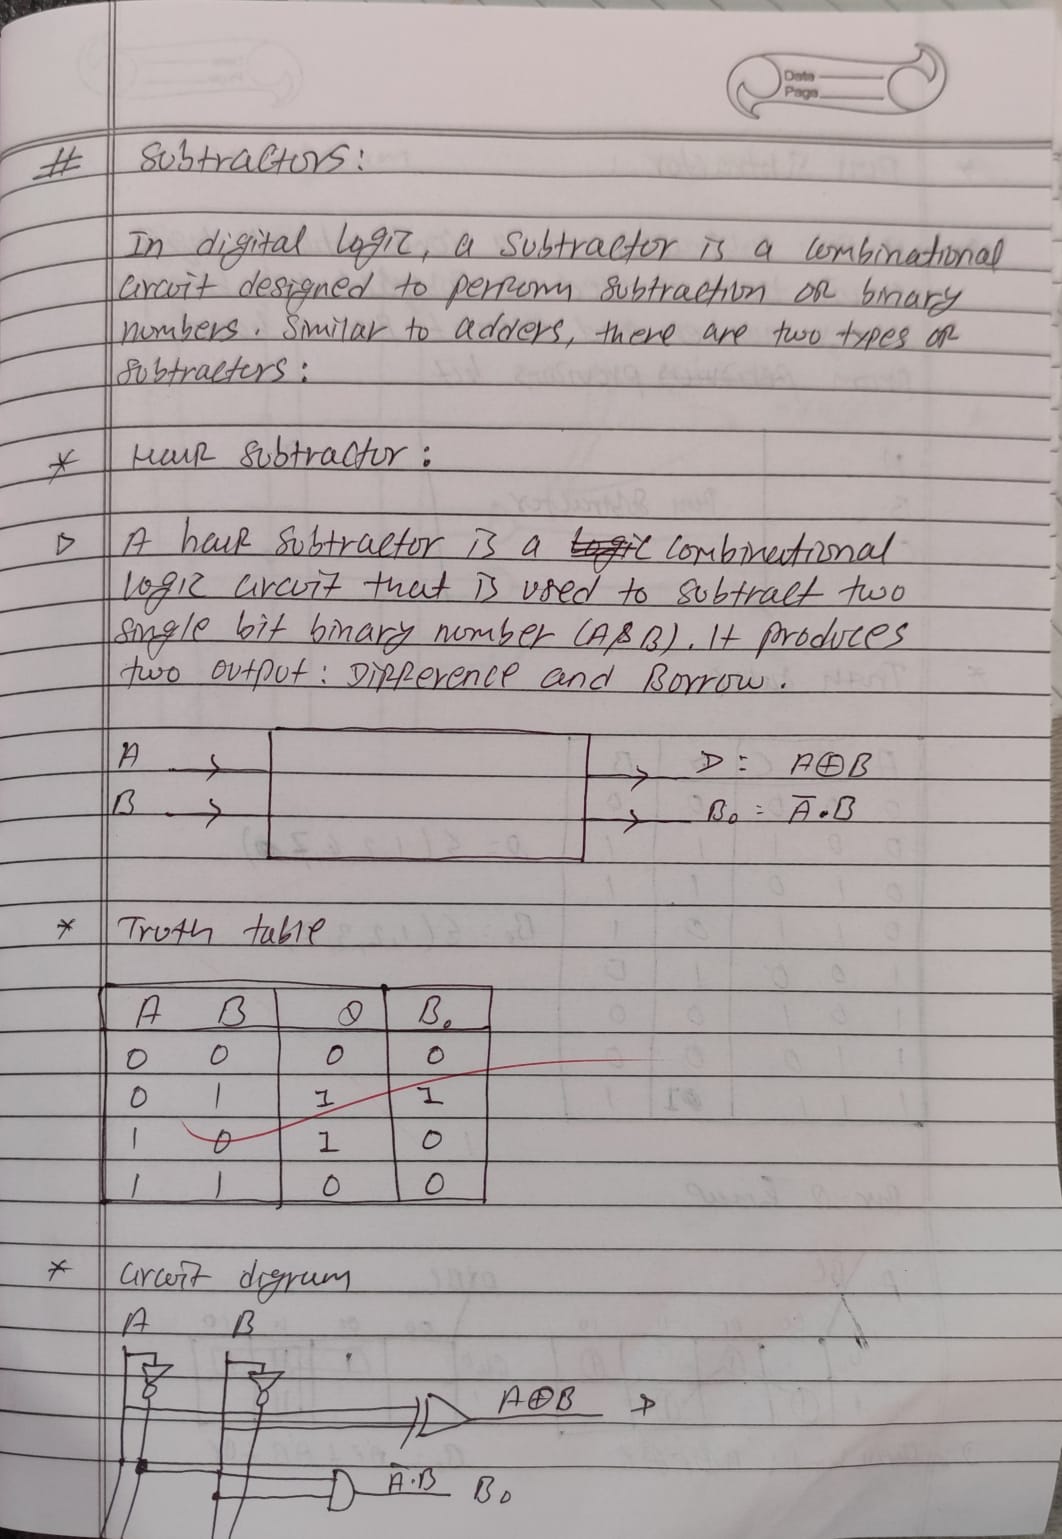 Data
Page
# Subtractors:
In digital logic, a subtractor is a combinational
circuit designed to perform subtraction of binary
numbers. Similar to adders, there are two types of
subtractors:
* Half subtractor:
A half subtractor is a logic combinational
logic circuit that is used to subtract two
single bit binary number (A&B). It produces
two output: Difference and Borrow.
A D = A⊕B
B B₀ = A̅.B
* Truth table
A B D B₀
0 0 0 0
0 1 1 1
1 0 1 0
1 1 0 0
* Circuit digram
A B
A⊕B D
A̅.B B₀